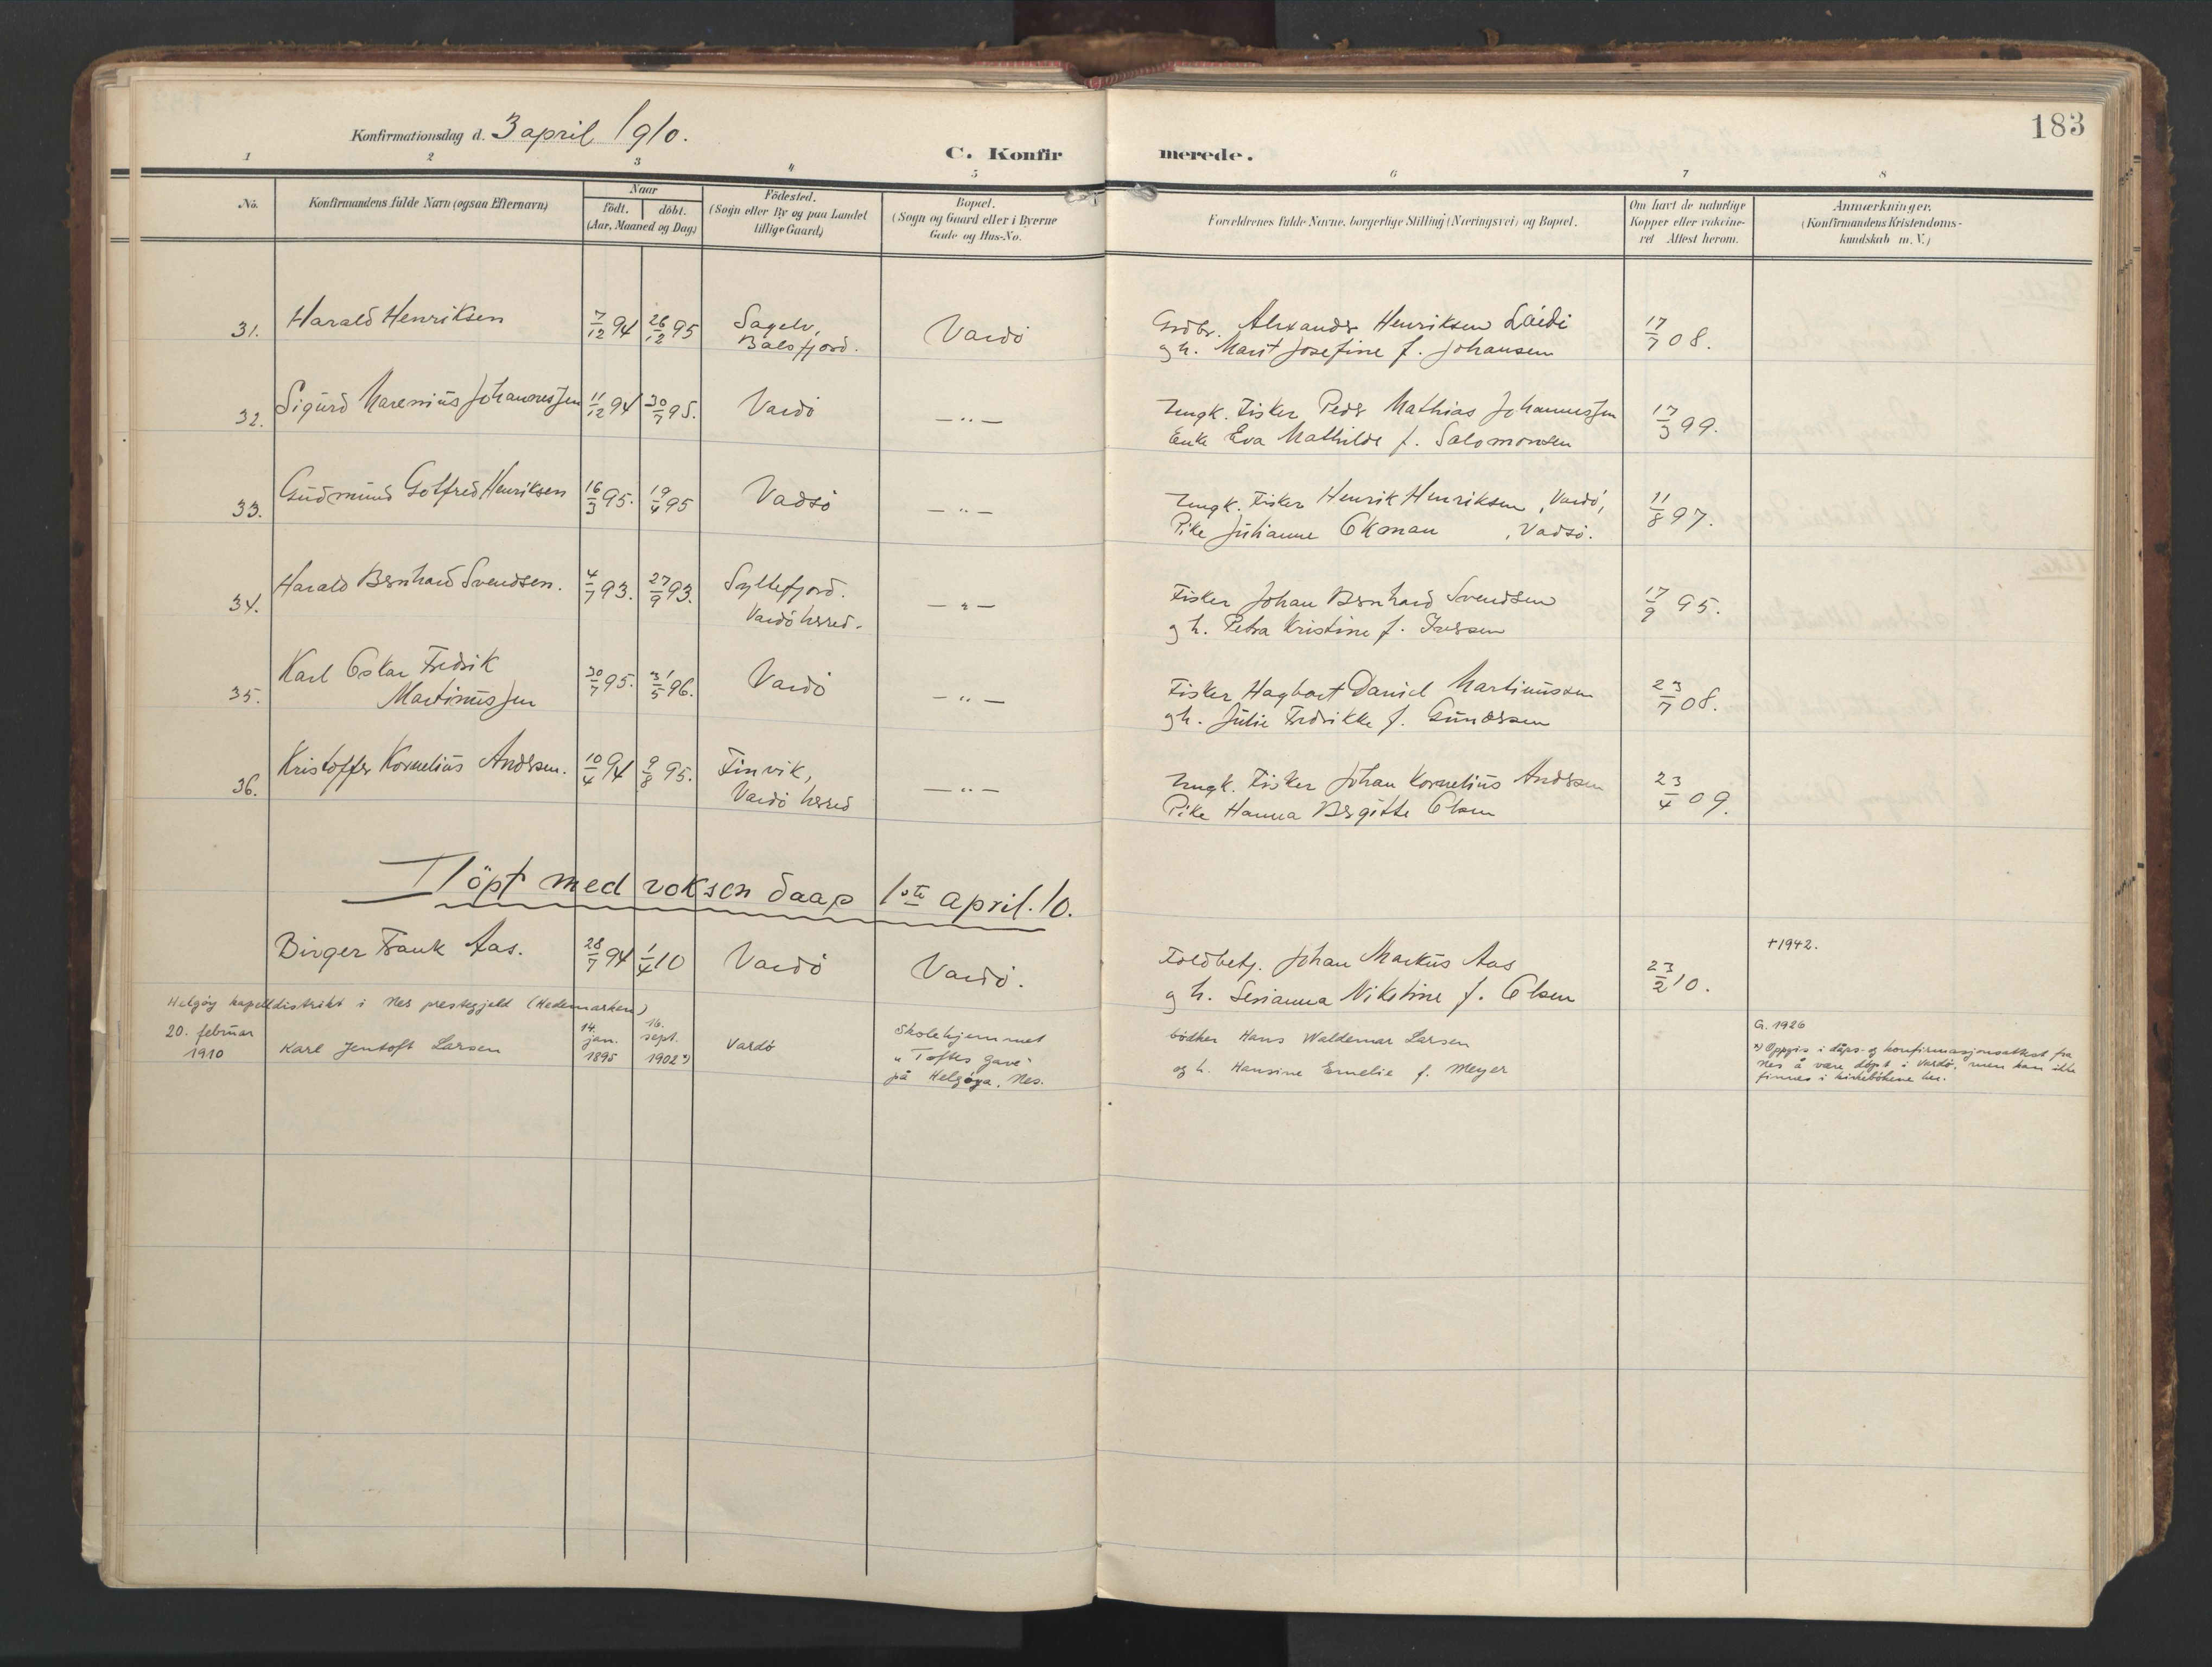 183
Konfirmationsdag d. 3 april 1910.
C. Konfirmerede.
1 2 3 4 5 6 7 8
No.
Konfirmandens fulde Navn (ogsaa Efternavn)
Naar
födt. döbt.
(Aar, Maaned og Dag)
Födested.
(Sogn eller By og paa Landet
tillige Gaard)
Bopæl.
(Sogn og Gaard eller i Byerne
Gade og Hus-No.
Forældrenes fulde Navne, borgerlige Stilling (Næringsvei) og Bopæl.
Om havt de naturlige
Kopper eller vakcine-
ret Attest herom.
Anmærkninger.
(Konfirmandens Kristendoms-
kundskab m. V.)
31. Harald Henriksen 7/12 94 26/12 95 Sagelv, Vardö Grdbr. Alexander Henriksen Láidi 17/7 08.
Balsfjord. og h. Marit Josefine f. Johansen
32. Sigurd Marenius Johannessen 11/12 94 30/7 95. Vardö — " — Ungk. Fisker Peder Mathias Johannessen 17/3 99.
Enke Eva Mathilde f. Salomonsen
33. Gudmund Gotfred Henriksen 16/3 95. 19/4 95 Vadsö — " — Ungk. Fisker Henrik Henriksen, Vardö, 11/8 97.
Pike Julianne Ekman, Vadsö.
34. Harald Bernhard Svendsen. 4/7 93. 27/9 93. Syltefjord. — " — Fisker Johan Bernhard Svendsen 17/9 95.
Vardö herred. og h. Petra Kristine f. Iversen
35. Karl Oskar Fredrik 30/7 95. 31/5 96. Vardö — " — Fisker Hagbart Daniel Martinussen 23/7 08.
Martinussen og h. Julie Fredrikke f. Gundersen
36. Kristoffer Kornelius Andersen. 10/4 94 9/8 95. Finvik, — " — Ungk. Fisker Johan Kornelius Andersen 23/4 09.
Vardö herred Pike Hanna Bergitte Olsen
Döpt med voksen daap 1ste april. 10.
Birger Frank Aas. 28/7 94 1/4 10 Vardö Vardö. Toldbetj. Johan Markus Aas 23/2 10. +1942.
og h. Serianna Nikoline f. Olsen
Helgøy kapelldistrikt i Nes prestegjeld (Hedemarken)
20. februar
1910
Karl Jentoft Larsen
14. jan. 1895
16. sept. 1902 x)
Vardø
Skolehjemmet
"Toftes Gave"
på Helgøya, Nes.
bødker Hans Waldemar Larsen
og h. Hansine Emelie f. Meyer
G. 1926
x) Oppgis i dåps- og konfirmasjonsattest fra
Nes å være døpt i Vardø, men kan ikke
finnes i kirkebøkene her.